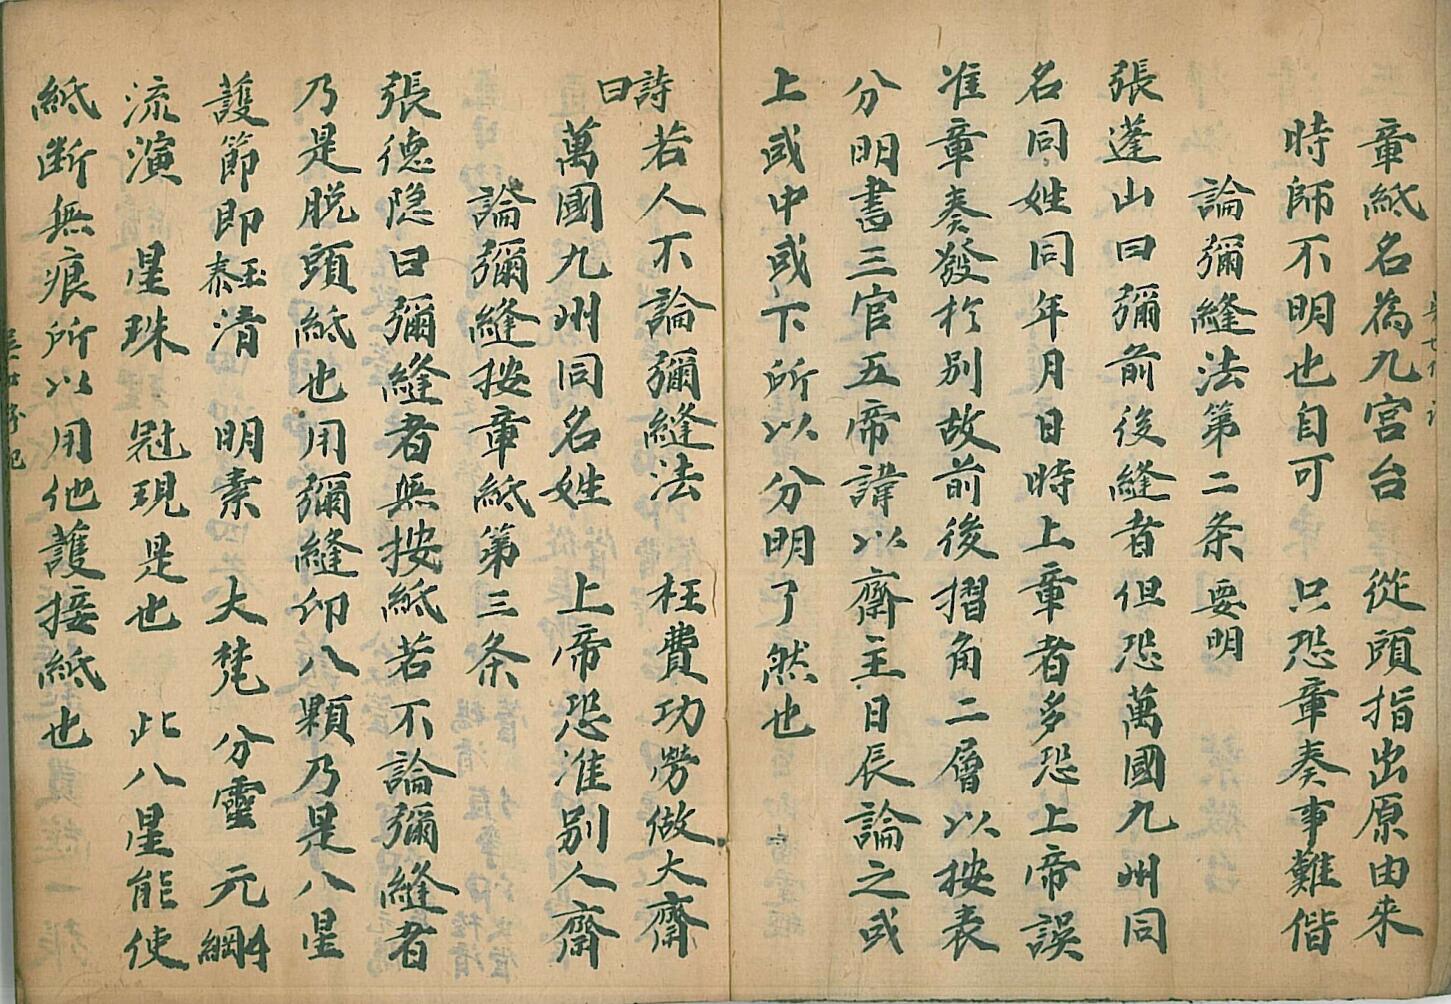 章紙名為九宮台　從頭指出原由来
時師不明也自可　只恐章奏事難偕
論彌縫法第二条　要明
張蓬山曰彌前後縫者但恐萬國九州同
名同姓同年月日時上章者多恐上帝誤
准章奏發扵别故前後摺角二層以按表
分明書三官五帝諱以齋主日辰論之或
上或中或下所以分明了然也
詩曰
若人不論彌縫法　枉費功勞做大齋
萬國九州同名姓　上帝恐准别人齋
論彌縫按章紙第三条
張德隐曰彌縫者無按紙若不論彌縫者
乃是脱頭紙也用彌縫印八顆乃是八星
護節即泰玉清　明素　大梵　分靈　元綱
流演　星珠　冠現是也　此八星能使
紙断無痕所以用他護接紙也